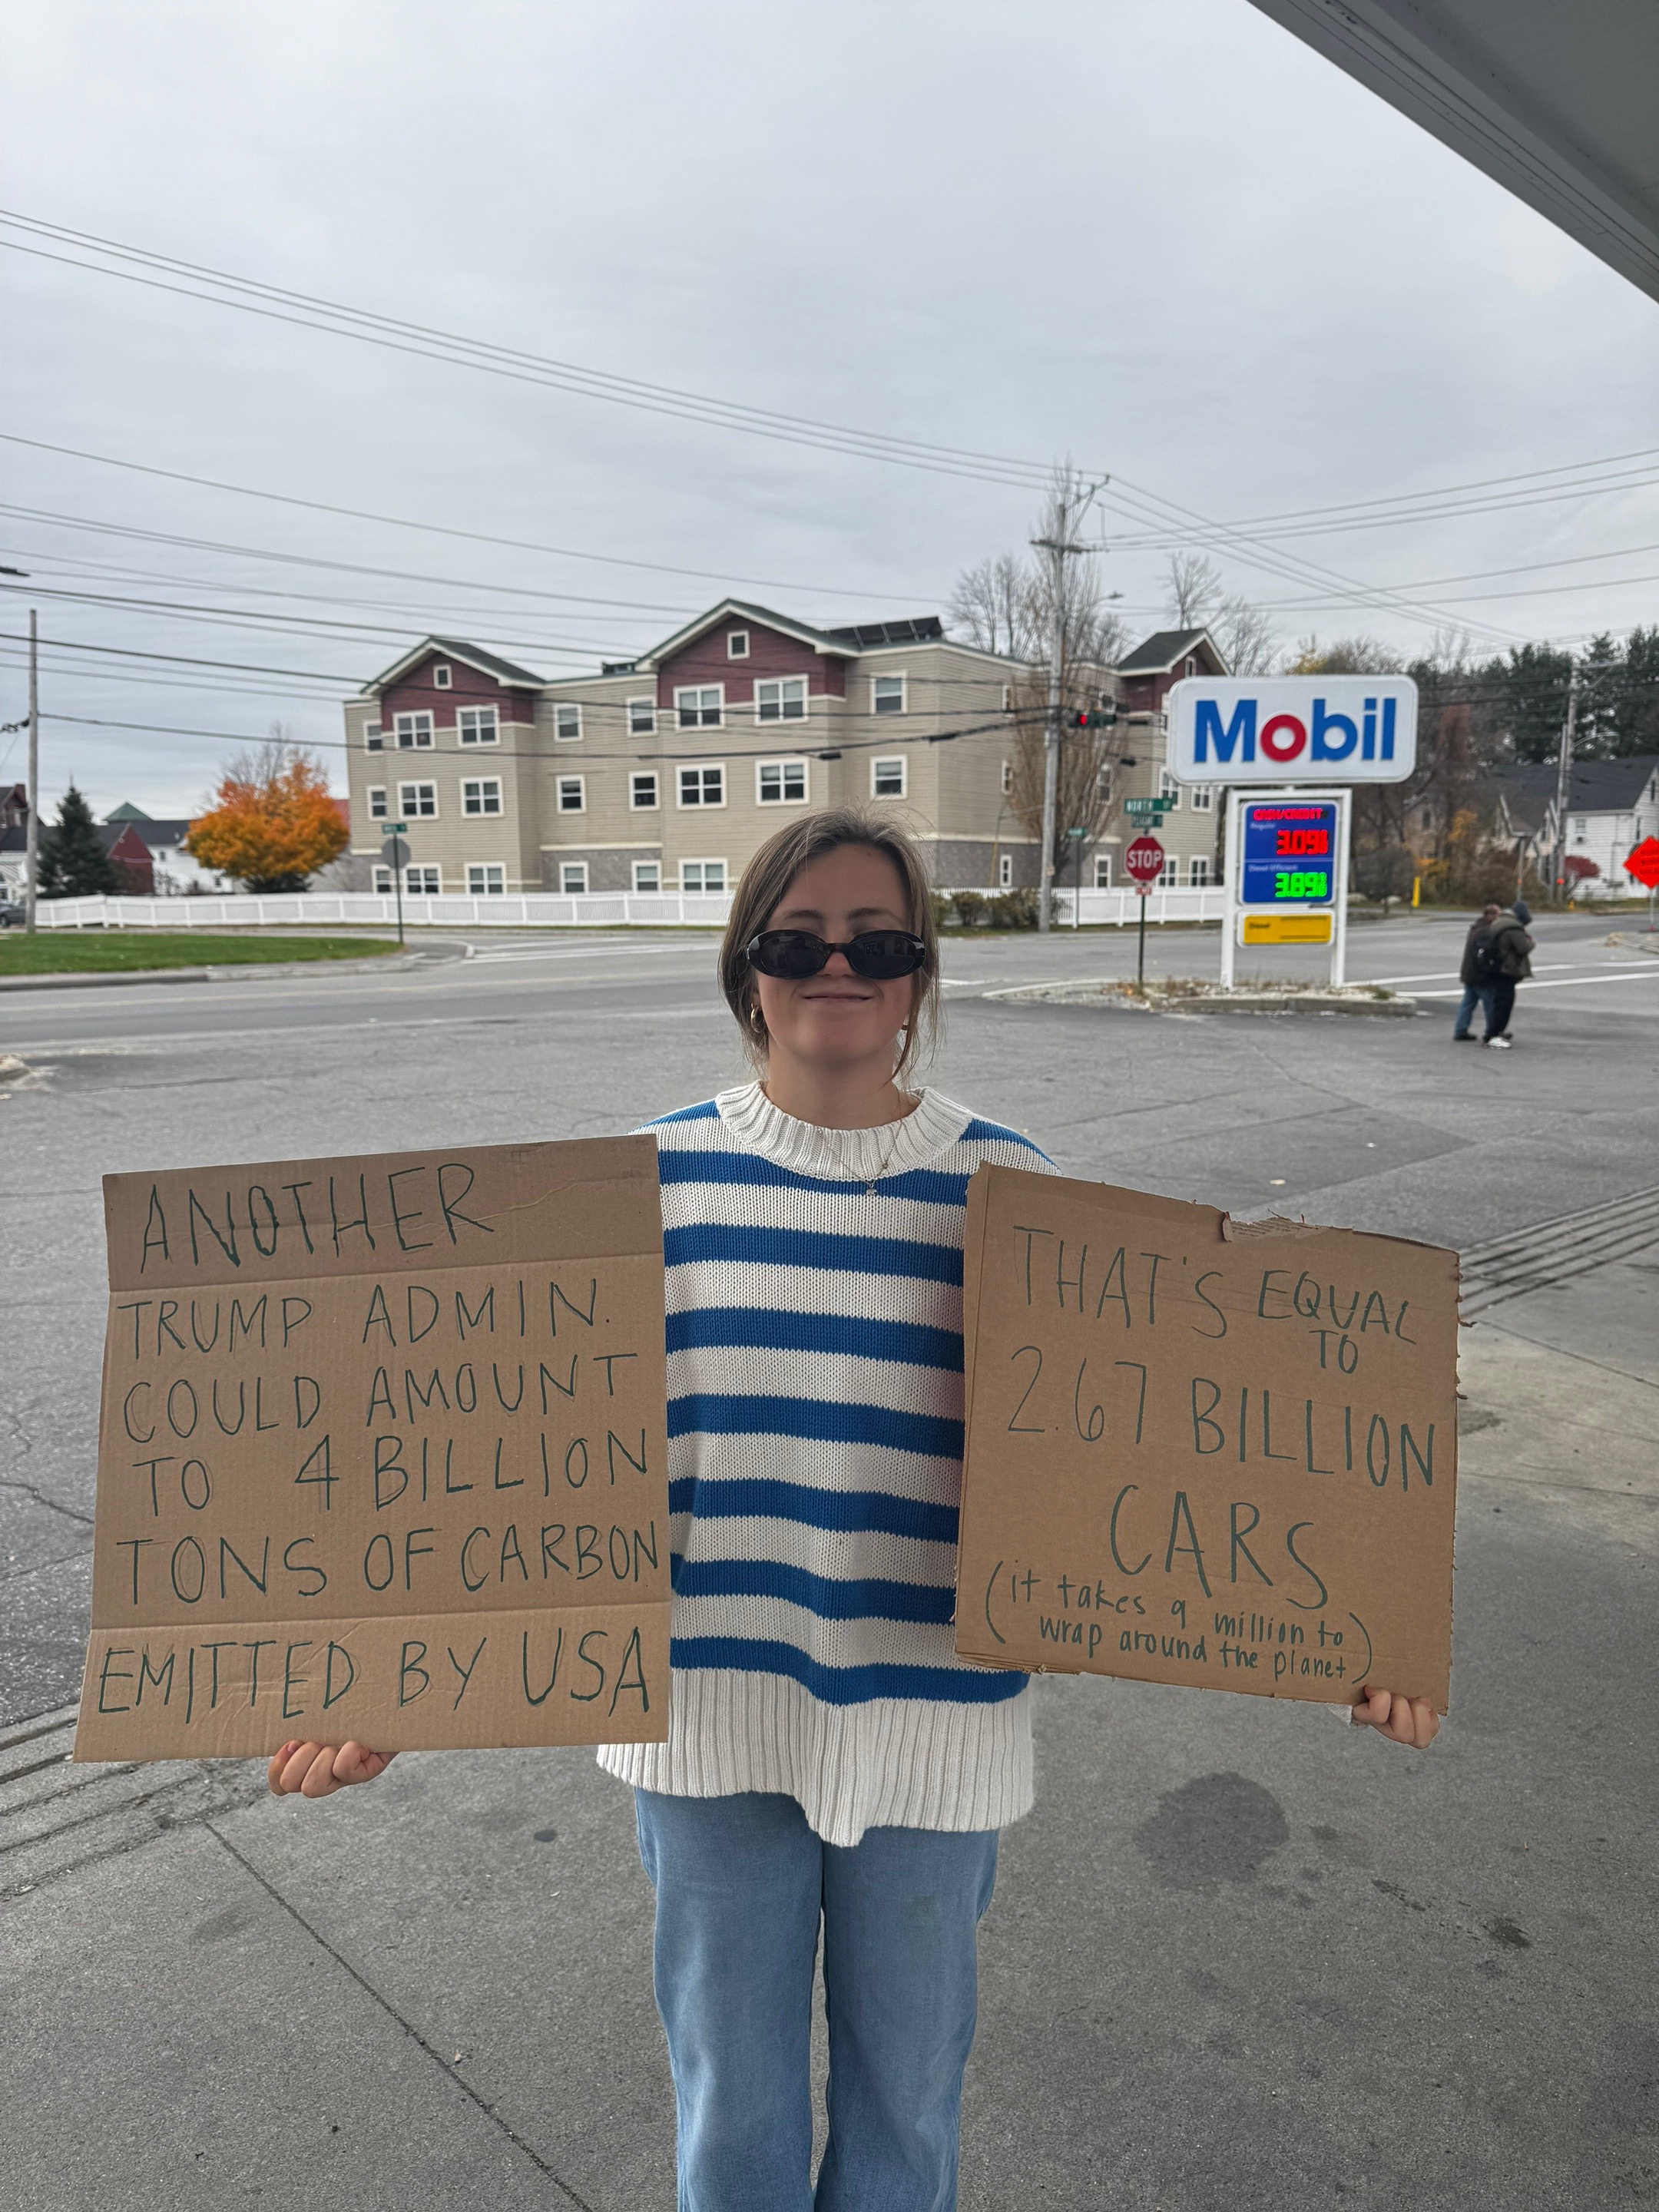 ANOTHER
TRUMP ADMIN.
COULD AMOUNT
TO 4 BILLION
TONS OF CARBON
EMITTED BY USA
THAT'S EQUAL
TO
2.67 BILLION
CARS
(it takes a million to
wrap around the planet)
Mobil
CASH/CREDIT
Regular
3.09
Diesel Efficient
3.89
Diesel
STOP
NORTH ST